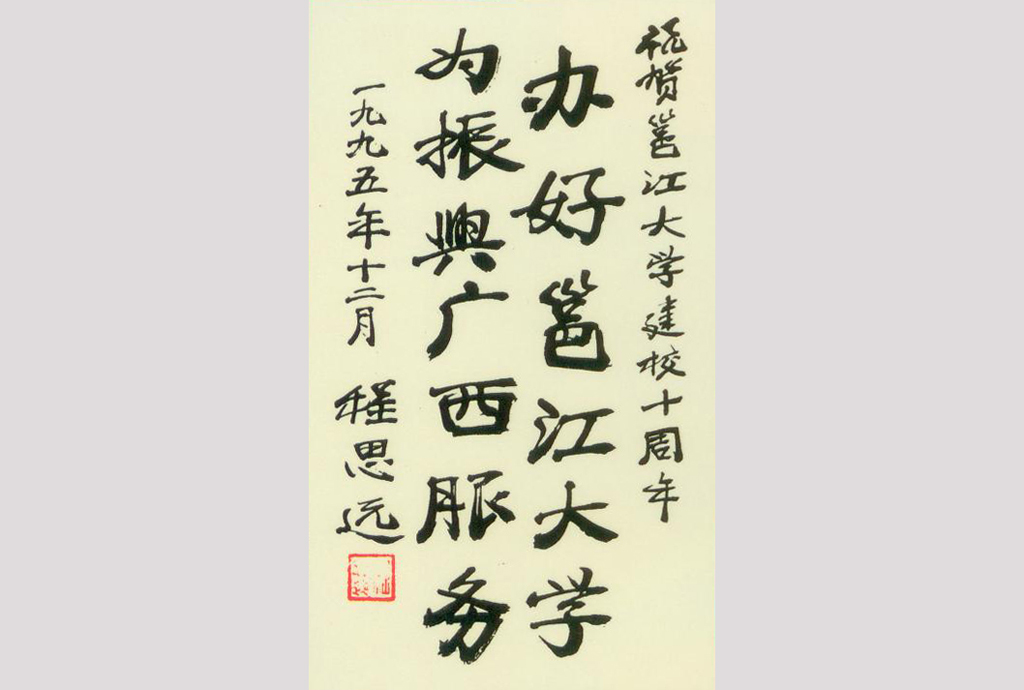 祝贺邕江大学建校十周年
办好邕江大学
为振興广西服务
一九九五年十二月
程思远